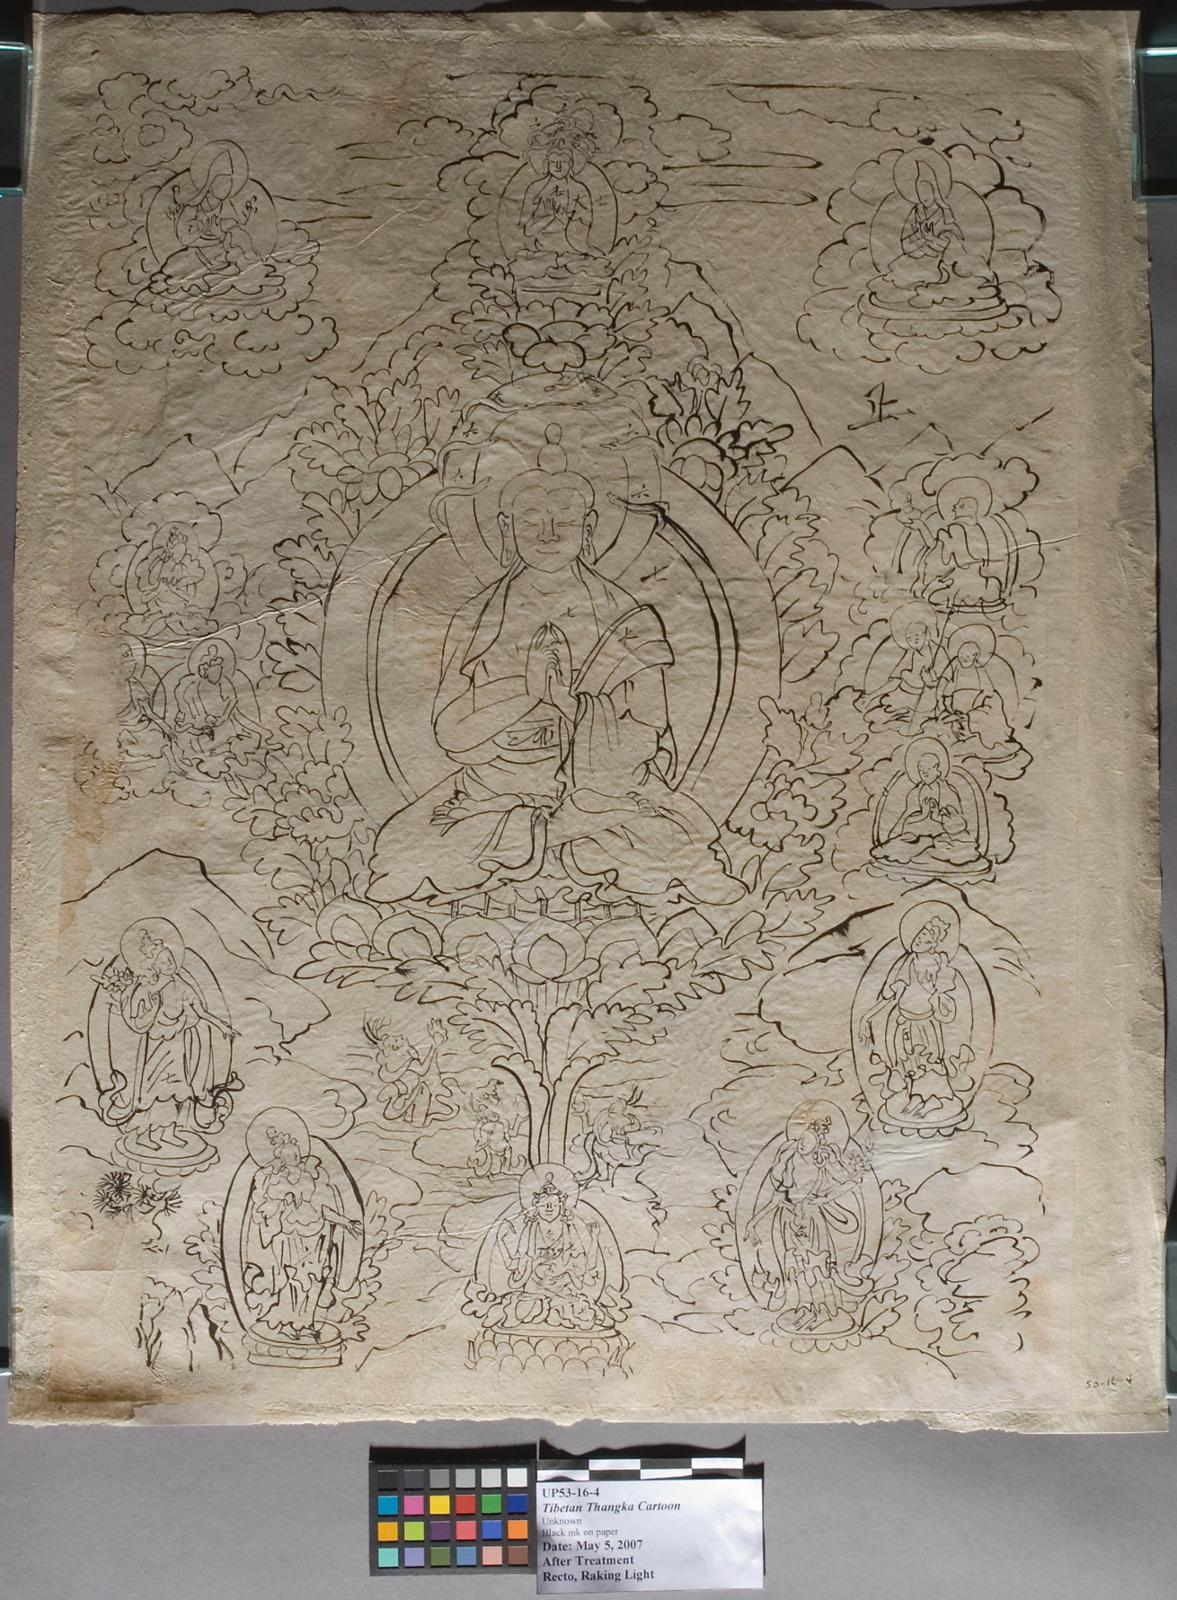 止
53-16-4
UP53-16-4
Tibetan Thangka Cartoon
Unknown
Black ink on paper
Date: May 5, 2007
After Treatment
Recto, Raking Light